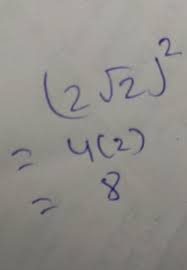 (2√2)²
= 4(2)
= 8